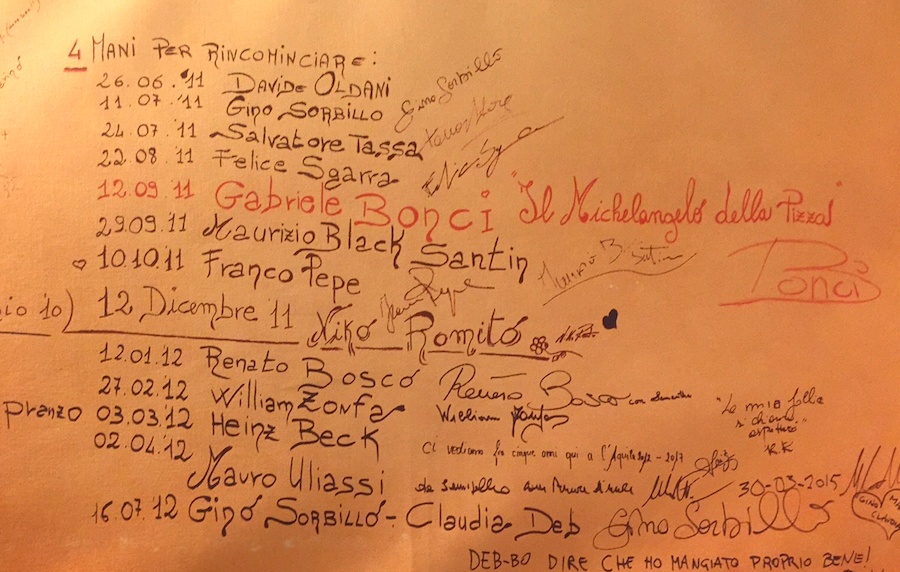 4 MANI PER RINCOMINCIARE:
26.06.'11 DAVIDE OLDANI
11.07.'11 GINO SORBILLO Gino Sorbillo
24.07.'11 Salvatore Tassa
22.08.'11 Felice Sgarra
12.09.'11 Gabriele Bonci "Il Michelangelo della Pizza"
29.09.'11 Maurizio Black Santin
10.10.'11 Franco Pepe Maurizio B. Santin Bonci
12 Dicembre '11 Niko Romito
12.01.12 Renato Bosco Renato Bosco con
27.02.12 William Zonfa William Zonfa "La mia
Pranzo 03.03.12 Heinz Beck
02.04.12 ci vediamo fra cinque anni qui a l'Aquila 2012-2017
Mauro Uliassi da 30-03-2015
16.07.12 Ginó Sorbilló - Claudia Deb Gino Sorbillo GINO
DEB-BO DIRE CHE HO MANGIATO PROPRIO BENE!